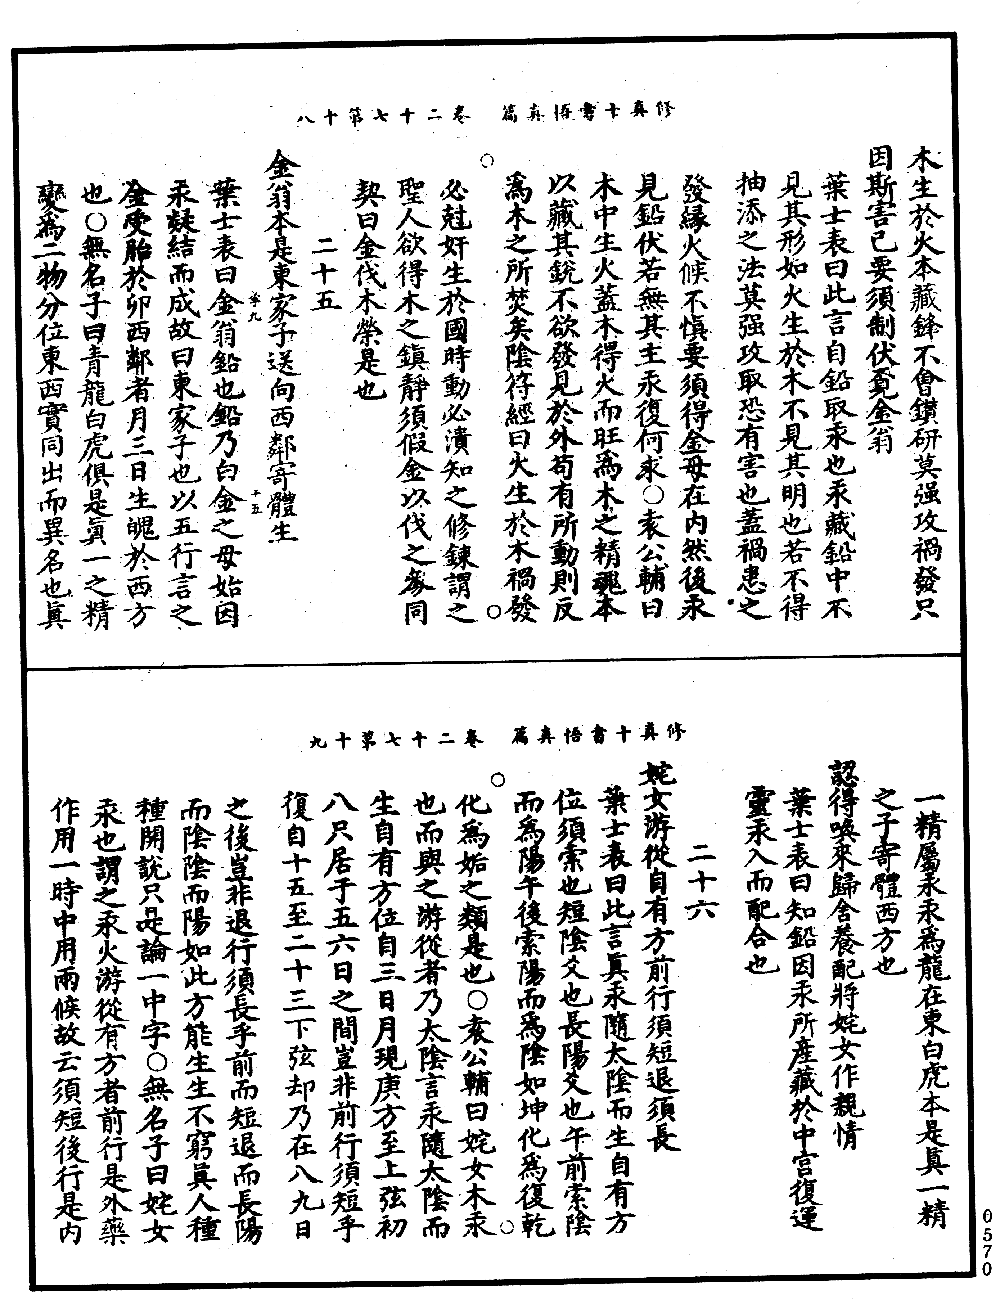 修真十書悟真篇　卷二十七第十八
木生於火本藏鋒不會鑽研莫强攻禍發只
因斯害己要須制伏覓金翁
葉士表曰此言自鉛取汞也汞藏鉛中不
見其形如火生於木不見其明也若不得
抽添之法莫强攻取恐有害也蓋禍患之
發緣火候不慎要須得金母在內然後汞
見鉛伏若無其主汞復何求○袁公輔曰
木中生火蓋木得火而旺爲木之精魂本
以藏其銳不欲發見於外苟有所動則反
爲木之所焚矣陰符經曰火生於木禍發
必尅奸生於國時動必潰知之修鍊謂之
聖人欲得木之鎮靜須假金以伐之參同
契曰金伐木榮是也
二十五
金翁本是東家子送向西鄰寄體生
葉士表曰金翁鉛也鉛乃白金之母始因
汞凝結而成故曰東家子也以五行言之
金受胎於卯西鄰者月三日生魄於西方
也○無名子曰青龍白虎俱是眞一之精
變爲二物分位東西實同出而異名也眞
修真十書悟真篇　卷二十七第十九
一精屬汞汞爲龍在東白虎本是眞一精
之子寄體西方也
認得喚來歸舍養配將姹女作親情
葉士表曰知鉛因汞所產藏於中宮復運
靈汞入而配合也
二十六
姹女游從自有方前行須短退須長
葉士表曰此言眞汞隨太陰而生自有方
位須索也短陰爻也長陽爻也午前索陰
而爲陽午後索陽而爲陰如坤化爲復乾
化爲姤之類是也○袁公輔曰姹女木汞
也而與之游從者乃太陰言汞隨太陰而
生自有方位自三日月現庚方至上弦初
八尺居于五六日之間豈非前行須短乎
復自十五至二十三下弦却乃在八九日
之後豈非退行須長乎前而短退而長陽
而陰陰而陽如此方能生生不窮眞人種
種開說只是論一中字○無名子曰姹女
汞也謂之汞火游從有方者前行是外藥
作用一時中用兩候故云須短後行是内
0570